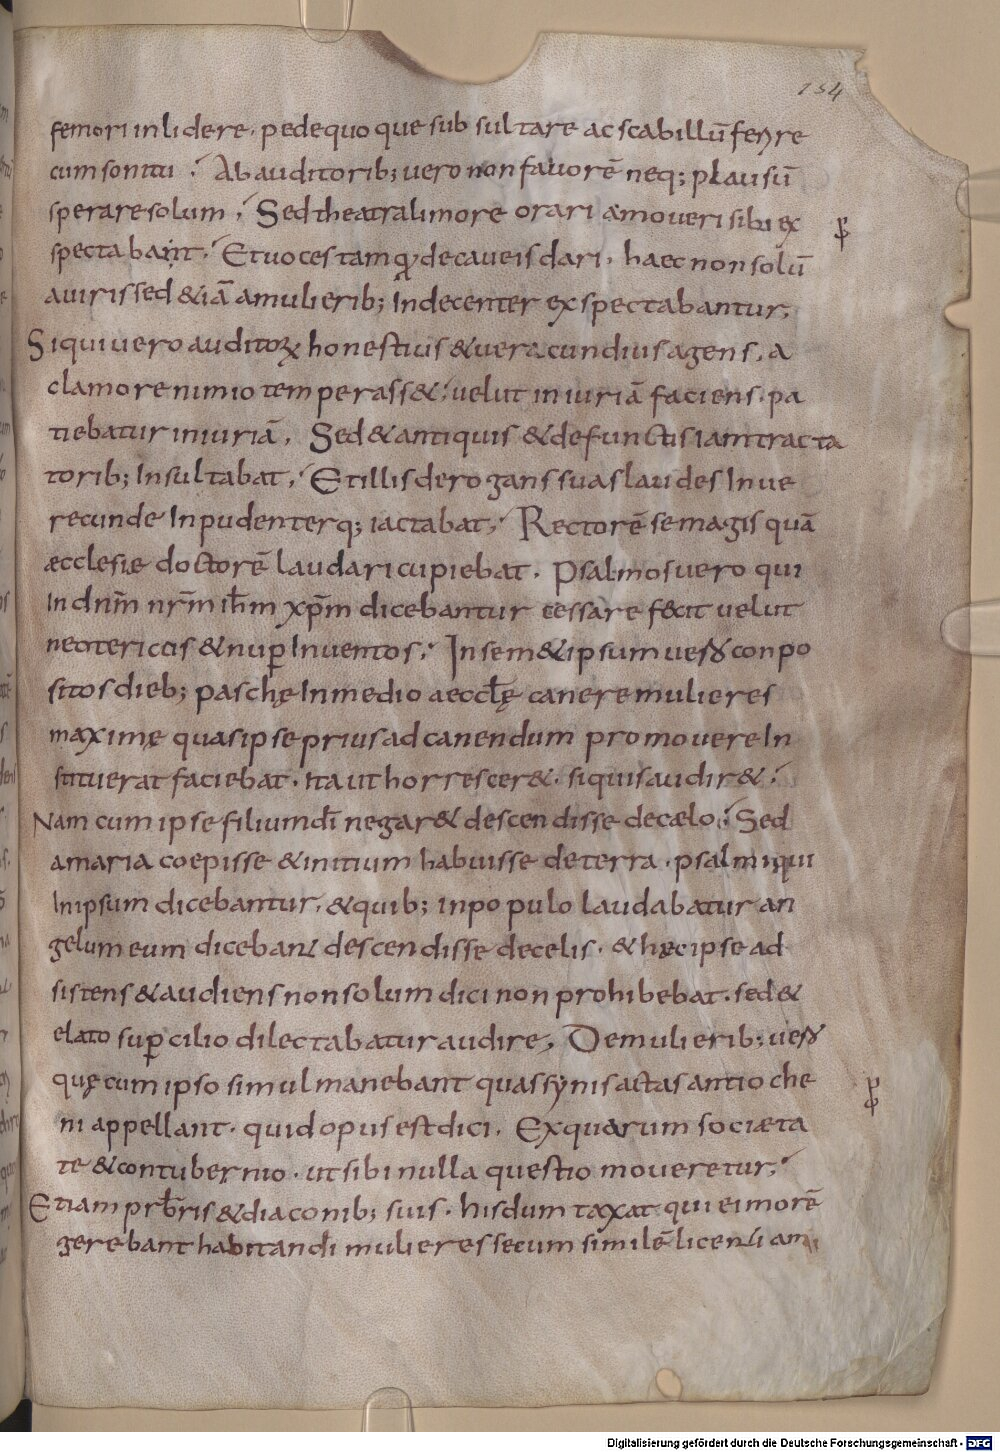 154
femori inlidere, pedequo que sub sultare ac scabillū ferire
cum sonitu. Ab auditorib; vero non favorē neq; plausū
sperare solum. Sed theatrali more orari amoveri sibi ex
spectabant. Et voces tamq̄ de caveis dari. haec non solū
a viris sed &iā a mulierib; indecenter ex spectabantur,
Siqui vero auditorꝝ honestius & veracundius agens, a
clamore nimio temperass&, velut iniuriā faciens. pa
tiebatur iniuriā. Sed & antiquis & defunctis iam tracta
torib; Insultabat. Et illis derogans suas laudes Inve
recunde Inpudenterq; iactabat. Rectorē se magis quā
æcclesiæ doctorē laudari cupiebat. Psalmos vero qui
In dn̄m nr̄m ih̄m xp̄m dicebantur cessare fecit velut
neotericos & nup̄ Inventos. In sem&ipsum vero conpo
sitos dieb; paschę In medio aeccl̄ę canere mulieres
maximę quas ipse prius ad canendum promovere In
stituerat faciebat. ita ut horrescer&. siquis audir&.
Nam cum ipse filium dī negar& descendisse de cælo. Sed
a maria coepisse & initium habuisse de terra. psalmi qui
In ipsum dicebantur, & quib; in populo laudabatur an
gelum eum dicebant descendisse de celis. & hęc ipse ad
sistens & audiens non solum dici non prohibebat. sed &
elato sup̄cilio dilectabatur audire. De mulierib; vero
quę cum ipso simul manebant quas synisactas antioche
ni appellant. quid opus est dici. Ex quarum sociæta
te & contubernio. ut sibi nulla questio moveretur,
Etiam prb̄ris & diaconib; suis. hisdum taxat qui ei morē
gerebant habitandi mulieres secum similē licenti am
Digitalisierung gefördert durch die Deutsche Forschungsgemeinschaft - DFG